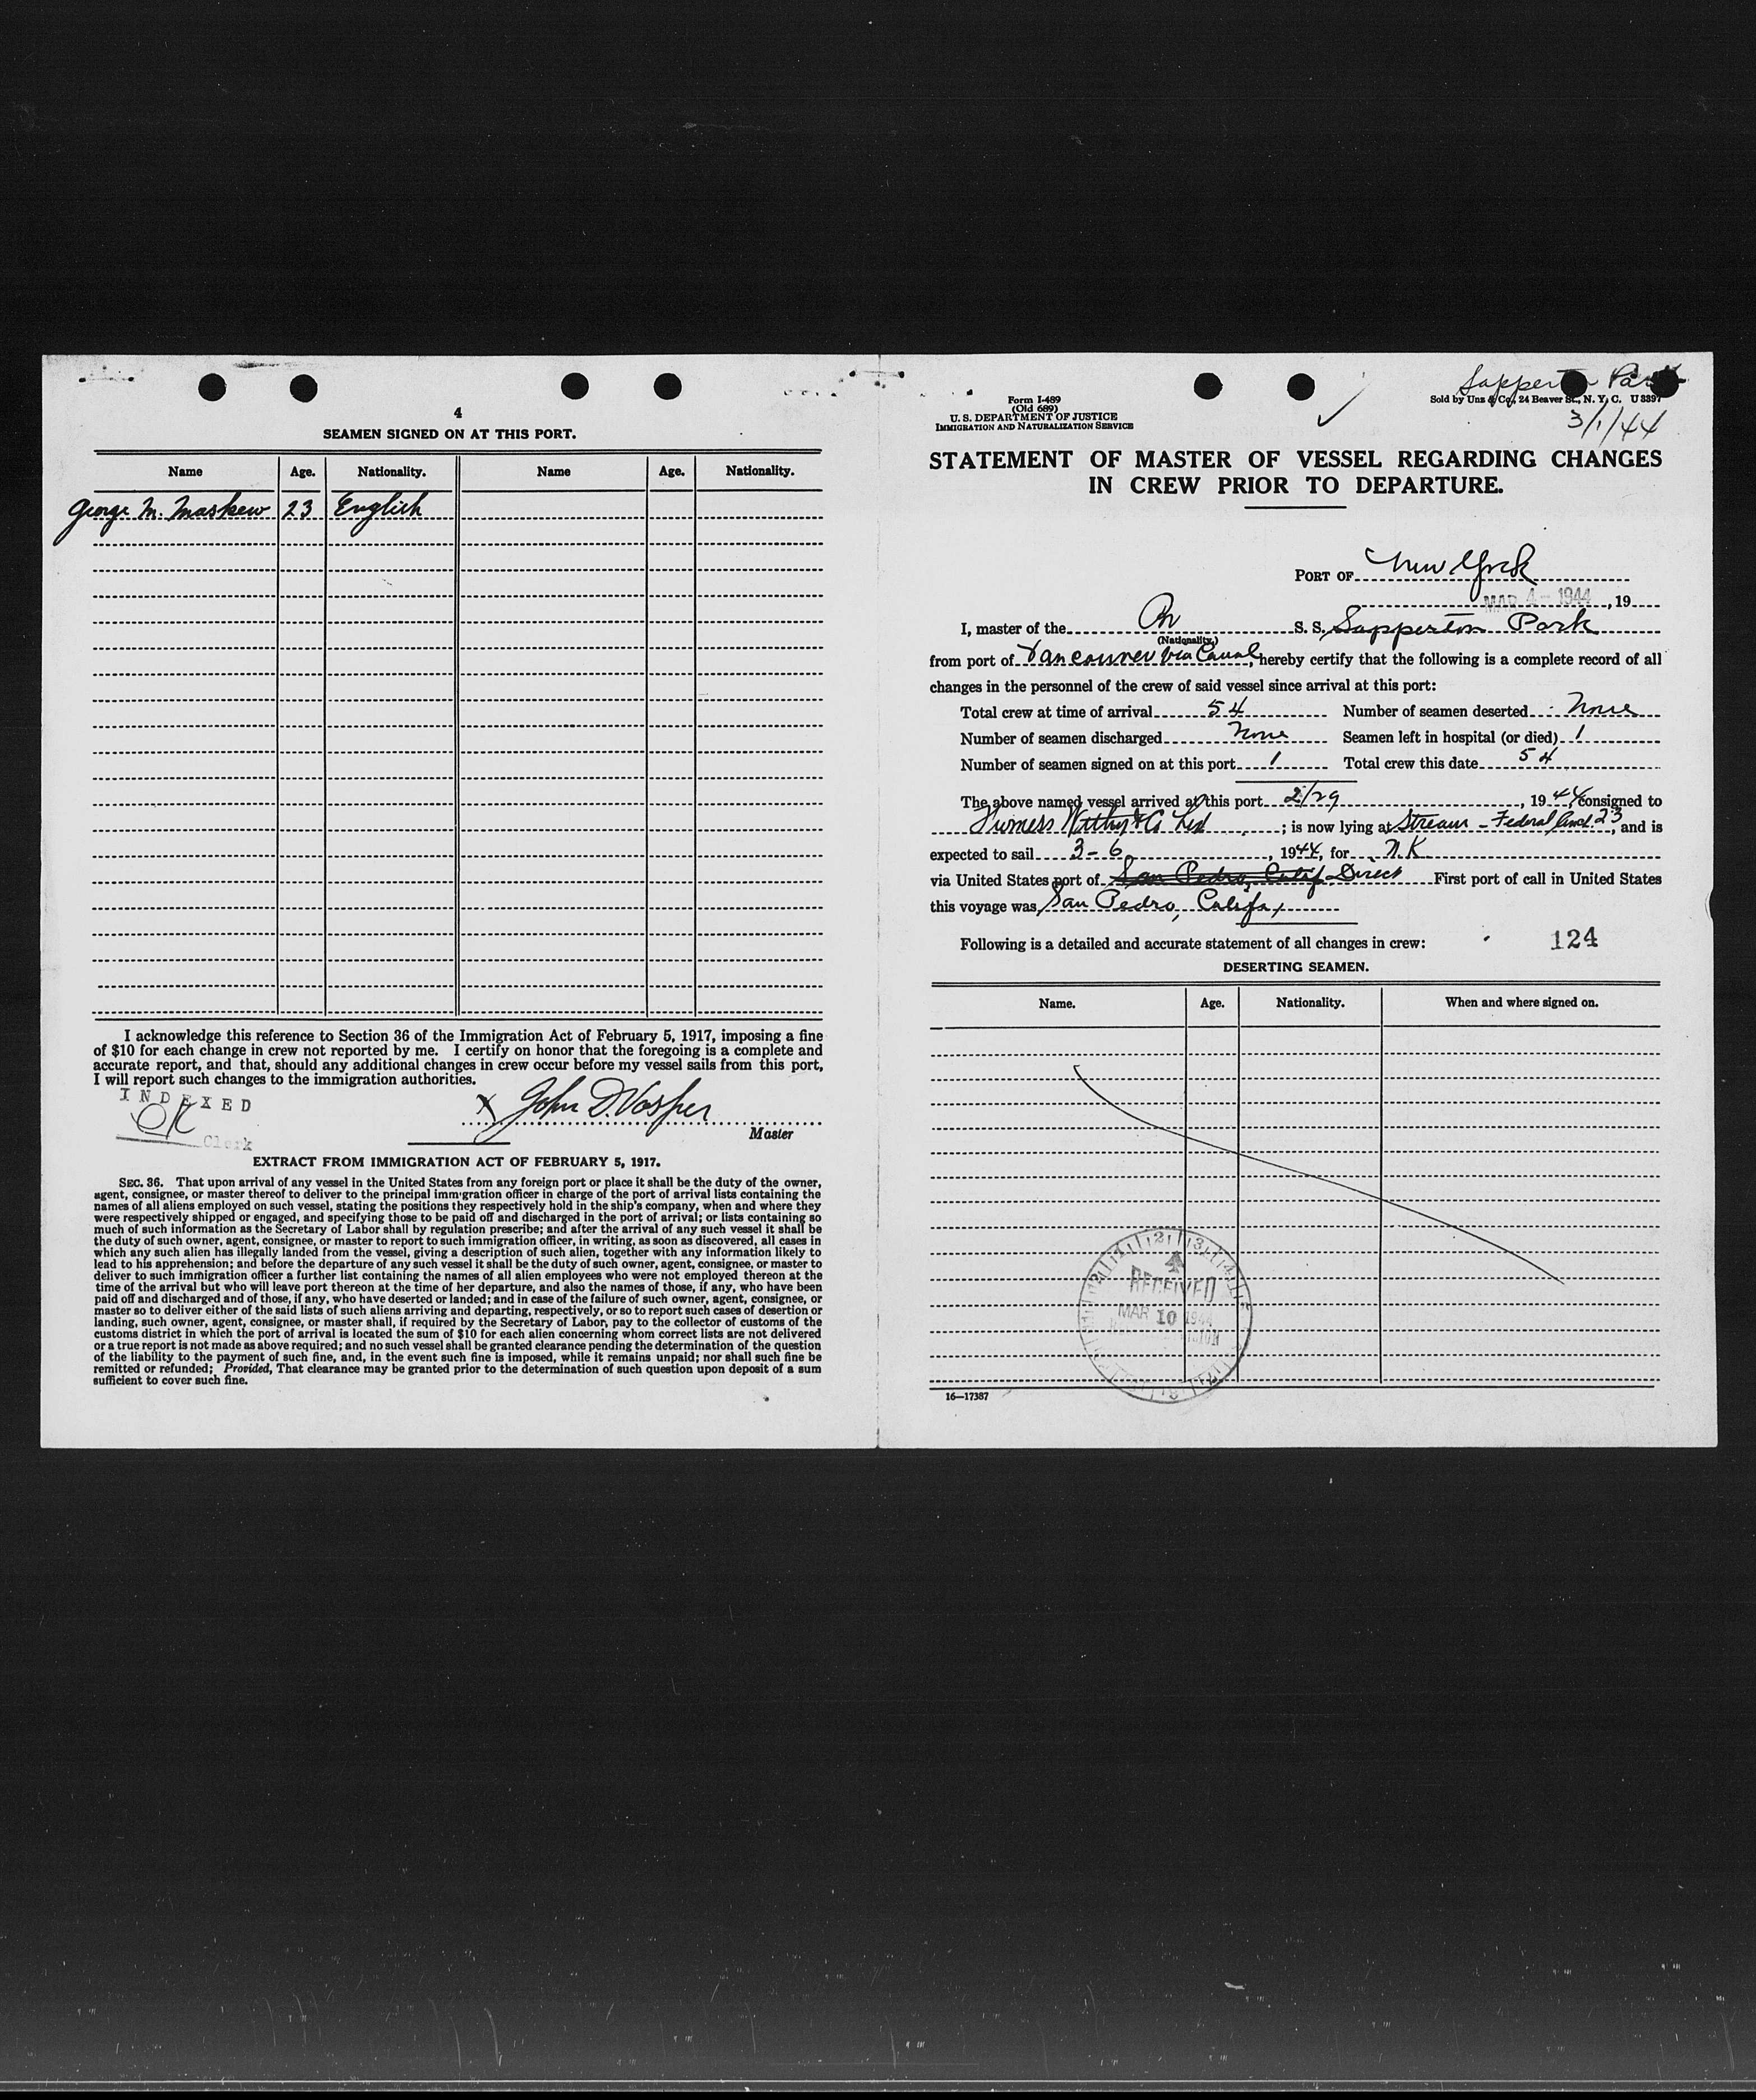 4
SEAMEN SIGNED ON AT THIS PORT.
Name Age. Nationality. Name Age. Nationality.
George M. Maskew 23 English
I acknowledge this reference to Section 36 of the Immigration Act of February 5, 1917, imposing a fine
of $10 for each change in crew not reported by me. I certify on honor that the foregoing is a complete and
accurate report, and that, should any additional changes in crew occur before my vessel sails from this port,
I will report such changes to the immigration authorities.
INDEXED
OK
Clerk
X John D. Vosper
Master
EXTRACT FROM IMMIGRATION ACT OF FEBRUARY 5, 1917.
SEC. 36. That upon arrival of any vessel in the United States from any foreign port or place it shall be the duty of the owner,
agent, consignee, or master thereof to deliver to the principal immigration officer in charge of the port of arrival lists containing the
names of all aliens employed on such vessel, stating the positions they respectively hold in the ship's company, when and where they
were respectively shipped or engaged, and specifying those to be paid off and discharged in the port of arrival; or lists containing so
much of such information as the Secretary of Labor shall by regulation prescribe; and after the arrival of any such vessel it shall be
the duty of such owner, agent, consignee, or master to report to such immigration officer, in writing, as soon as discovered, all cases in
which any such alien has illegally landed from the vessel, giving a description of such alien, together with any information likely to
lead to his apprehension; and before the departure of any such vessel it shall be the duty of such owner, agent, consignee, or master to
deliver to such immigration officer a further list containing the names of all alien employees who were not employed thereon at the
time of the arrival but who will leave port thereon at the time of her departure, and also the names of those, if any, who have been
paid off and discharged and of those, if any, who have deserted or landed; and in case of the failure of such owner, agent, consignee, or
master so to deliver either of the said lists of such aliens arriving and departing, respectively, or so to report such cases of desertion or
landing, such owner, agent, consignee, or master shall, if required by the Secretary of Labor, pay to the collector of customs of the
customs district in which the port of arrival is located the sum of $10 for each alien concerning whom correct lists are not delivered
or a true report is not made as above required; and no such vessel shall be granted clearance pending the determination of the question
of the liability to the payment of such fine, and, in the event such fine is imposed, while it remains unpaid; nor shall such fine be
remitted or refunded; Provided, That clearance may be granted prior to the determination of such question upon deposit of a sum
sufficient to cover such fine.
Sapperton Park
3/1/44
Form I-489
(Old 689)
U. S. DEPARTMENT OF JUSTICE
IMMIGRATION AND NATURALIZATION SERVICE
Sold by Unz & Co., 24 Beaver St., N. Y. C. U 3397
STATEMENT OF MASTER OF VESSEL REGARDING CHANGES
IN CREW PRIOR TO DEPARTURE.
PORT OF New York
MAR 4 - 1944, 19
I, master of the Br S. S. Sapperton Park
(Nationality)
from port of Vancouver via Canal, hereby certify that the following is a complete record of all
changes in the personnel of the crew of said vessel since arrival at this port:
Total crew at time of arrival 54 Number of seamen deserted None
Number of seamen discharged None Seamen left in hospital (or died) 1
Number of seamen signed on at this port 1 Total crew this date 54
The above named vessel arrived at this port 2/29, 1944, consigned to
Furness Withy & Co Ltd; is now lying at Stream - Federal Anch. 23, and is
expected to sail 3-6, 1944, for N.K.
via United States port of San Pedro, Calif Direct First port of call in United States
this voyage was San Pedro, Calif
Following is a detailed and accurate statement of all changes in crew:
124
DESERTING SEAMEN.
Name. Age. Nationality. When and where signed on.
RECEIVED
MAR 10 1944
16—17387